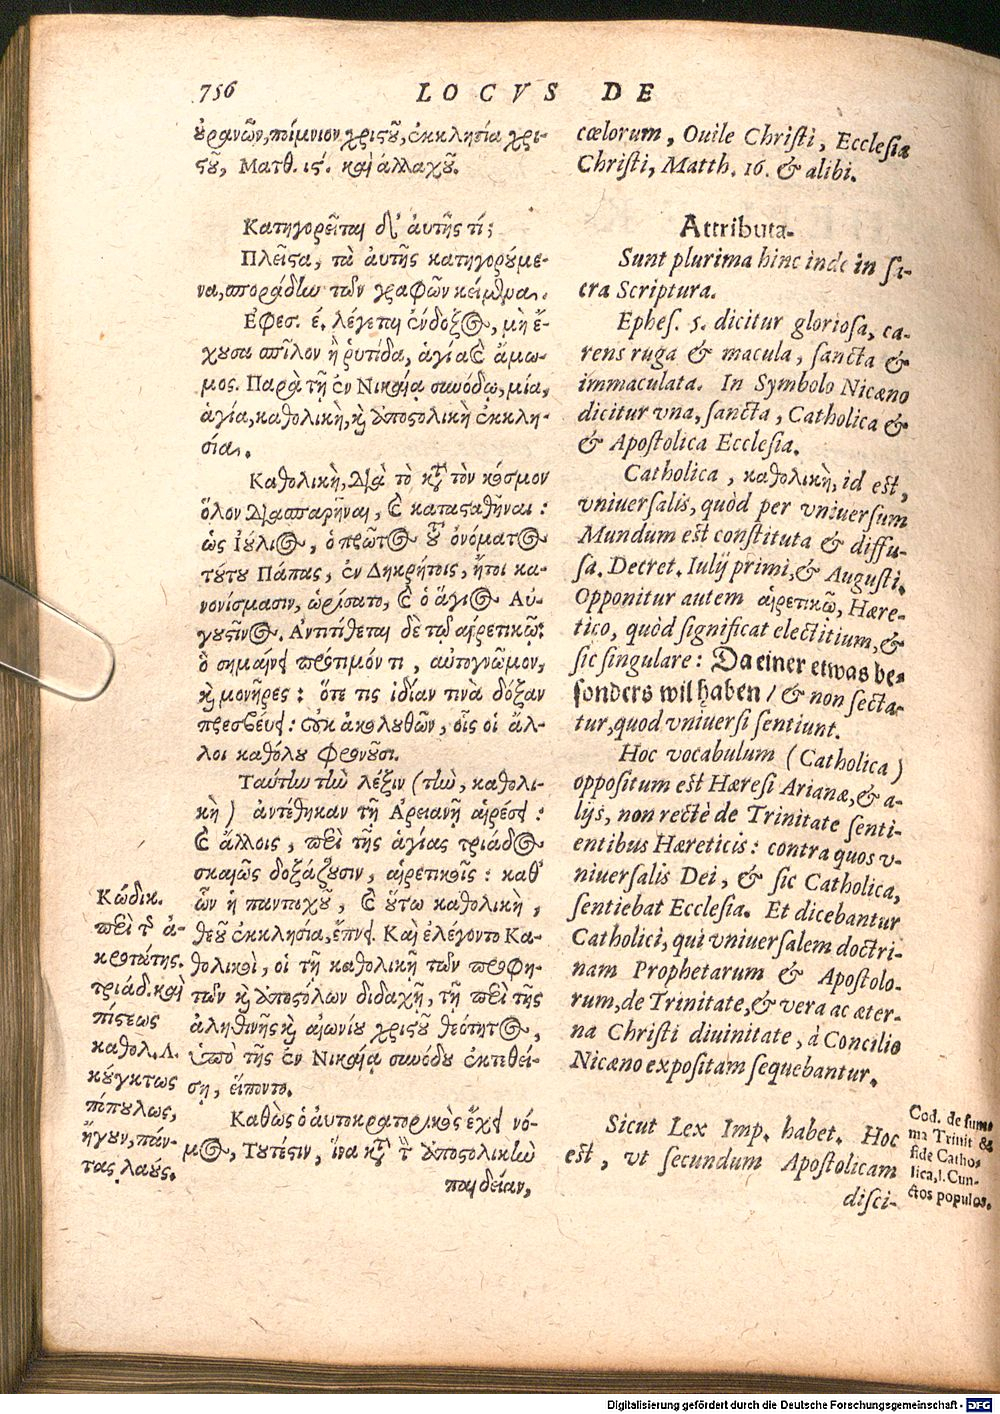 756
LOCVS DE
ȣ̓ρανῶν, ποίμνιον χριϛοῦ, ἐκκλησία χρι-
ϛοῦ, Ματθ. ιϛ. καὶ ἀλλαχοῦ.
Κατηγορεῖται δι' ἀυτῆς τί;
Πλεῖϛα, τὰ ἀυτῆς κατηγορȣ́με-
να, σποράδίω τῶν γραφῶν κείμϑμα.
Εφεσ. έ. λέγεται ἐνδοξος, μὴ ἔ-
χȣσα σπῖλον ἢ ῥυτίδα, ἁγία καὶ ἄμω-
μος. Παρὰ τῇ ἐν Νικαίᾳ σωόδῳ, μία,
ἁγία, καθολικὴ, καὶ ἀποϛολικὴ ἐκκλη-
σία.
Καθολικὴ, Διὰ τὸ κτ̀ τὸν κόσμον
ὅλον Διασπαρῆναι, καὶ καταϛαθῆναι:
ὡς Ἰȣ́λιος, ὁ πρῶτος τȣ͂ ὀνόματος
τȣ́τȣ Πάπας, ἐν Δηκρήτοις, ἤτοι κα-
νονίσμασιν, ὡρίσατο, καὶ ὁ ἅγιος Αὐ-
γȣϛῖνος. Αντιτίθεται δὲ τῶ αἱρετικῷ:
ὃ σημαίνει πρότιμόν τι, αὐτογνῶμον,
καὶ μονῆρες: ὅτε τις ἰδίαν τινὰ δόξαν
πρεσϐέυει: ȣ̓κ ἀκολȣθῶν, οἷς οἱ ἄλ-
λοι καθόλȣ φρονȣ͂σι.
Ταύτίω τίω λέξιν (τίω, καθολι-
κὴ) ἀντέθηκαν τῇ Αρειανῇ αἱρέσει:
καὶ ἄλλοις, περὶ τῆς ἁγίας τριάδος
σκαιῶς δοξάζȣσιν, αἱρετικοῖς: καθ'
ὧν ἡ πανταχοῦ, καὶ ȣ̔́τω καθολικὴ,
θεοῦ ἐκκλησία, ἔπνει. Καὶ ἐλέγοντο Κα-
θολικοὶ, οἱ τῇ καθολικῇ τῶν προφη-
τῶν καὶ ἀποϛόλων διδαχῇ, τῇ περὶ τῆς
ἀληθινῆς καὶ αἰωνίȣ χριϛοῦ θεότητος,
ὑπὸ τῆς ἐν Νικαίᾳ σωόδȣ ἐκτεθεί-
σῃ, εἵποντο.
Καθὼς ὁ ἀυτοκρατορικὸς ἔχει νό-
μος, Τȣτέϛιν, ἵνα κτ̀ τ̀ ἀποϛολικίω
παιδείαν,
Κώδικ.
περὶ τ̃ ἀ-
κροτάτης.
τριάδ. καὶ
πίϛεως
καθολ. Λ.
κȣ́γκτως
πόπȣλως,
ἤγȣν, πάν-
τας λαȣ́ς.
cælorum, Ouile Christi, Ecclesiæ
Christi, Matth. 16. & alibi.
Attributa.
Sunt plurima hinc inde in sa-
cra Scriptura.
Ephes. 5. dicitur gloriosa, ca-
rens ruga & macula, sancta &
immaculata. In Symbolo Nicæno
dicitur vna, sancta, Catholica &
& Apostolica Ecclesia.
Catholica, καθολικὴ, id est,
vniuersalis, quòd per vniuersum
Mundum est constituta & diffu-
sa. Decret. Iulij primi, & Augusti.
Opponitur autem αἱρετικῷ, Hære-
tico, quòd significat electitium, &
sic singulare: Da einer etwas be-
sonders wil haben / & non secta-
tur, quod vniuersi sentiunt.
Hoc vocabulum (Catholica)
oppositum est Hæresi Arianæ, & a-
lijs, non rectè de Trinitate senti-
entibus Hæreticis: contra quos v-
niuersalis Dei, & sic Catholica,
sentiebat Ecclesia. Et dicebantur
Catholici, qui vniuersalem doctri-
nam Prophetarum & Apostolo-
rum, de Trinitate, & vera ac æter-
na Christi diuinitate, à Concilio
Nicæno expositam sequebantur.
Sicut Lex Imp. habet. Hoc
est, vt secundum Apostolicam
disci-
Cod. de sum-
ma Trinit &
fide Catho-
lica, l. Cun-
ctos populos.
Digitalisierung gefördert durch die Deutsche Forschungsgemeinschaft - DFG